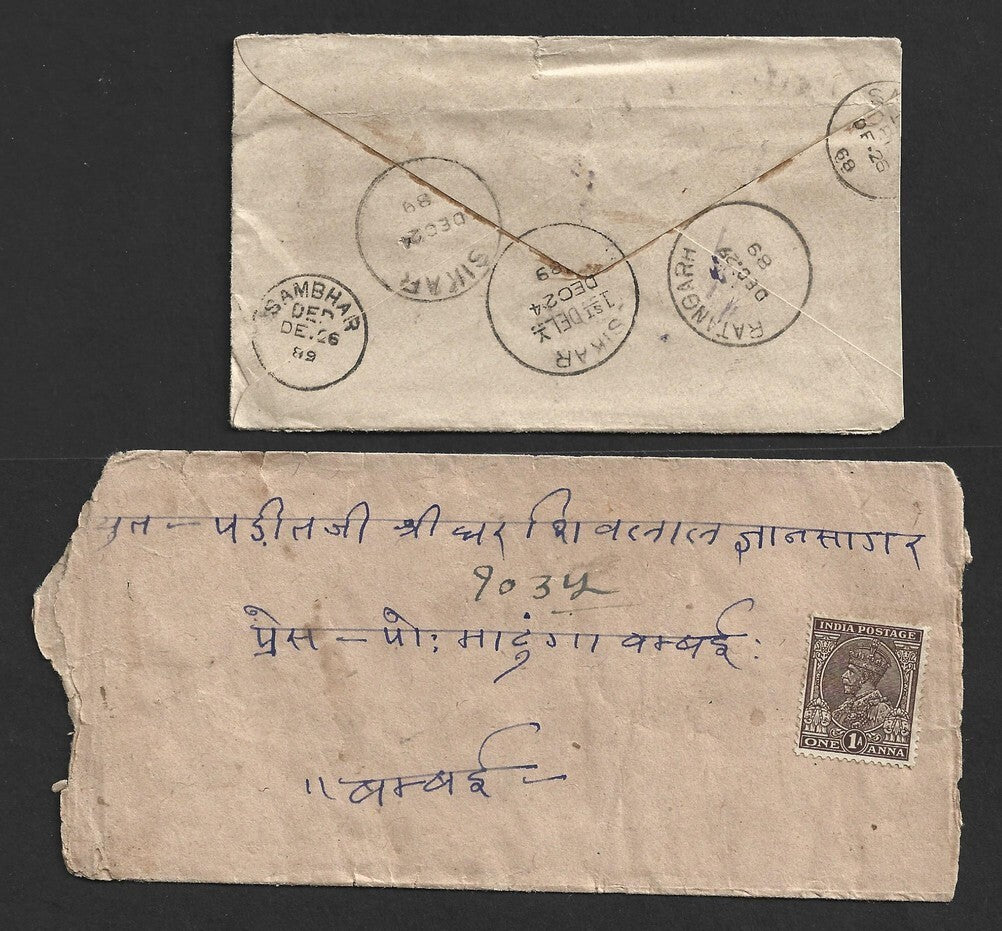 SIKAR
DEC 24
89
SIKAR
1ST DELY
DEC 24
89
RATANGARH
DEC
89
SAMBHAR
DEP
DE. 26
89
DE. 26
89
युत - पड़ीतजी श्रीधर शिवलाल ज्ञानसागर
१०३५
प्रेस - पो: माटुंगा बम्बई :
" बम्बई -
INDIA POSTAGE
ONE 1A ANNA